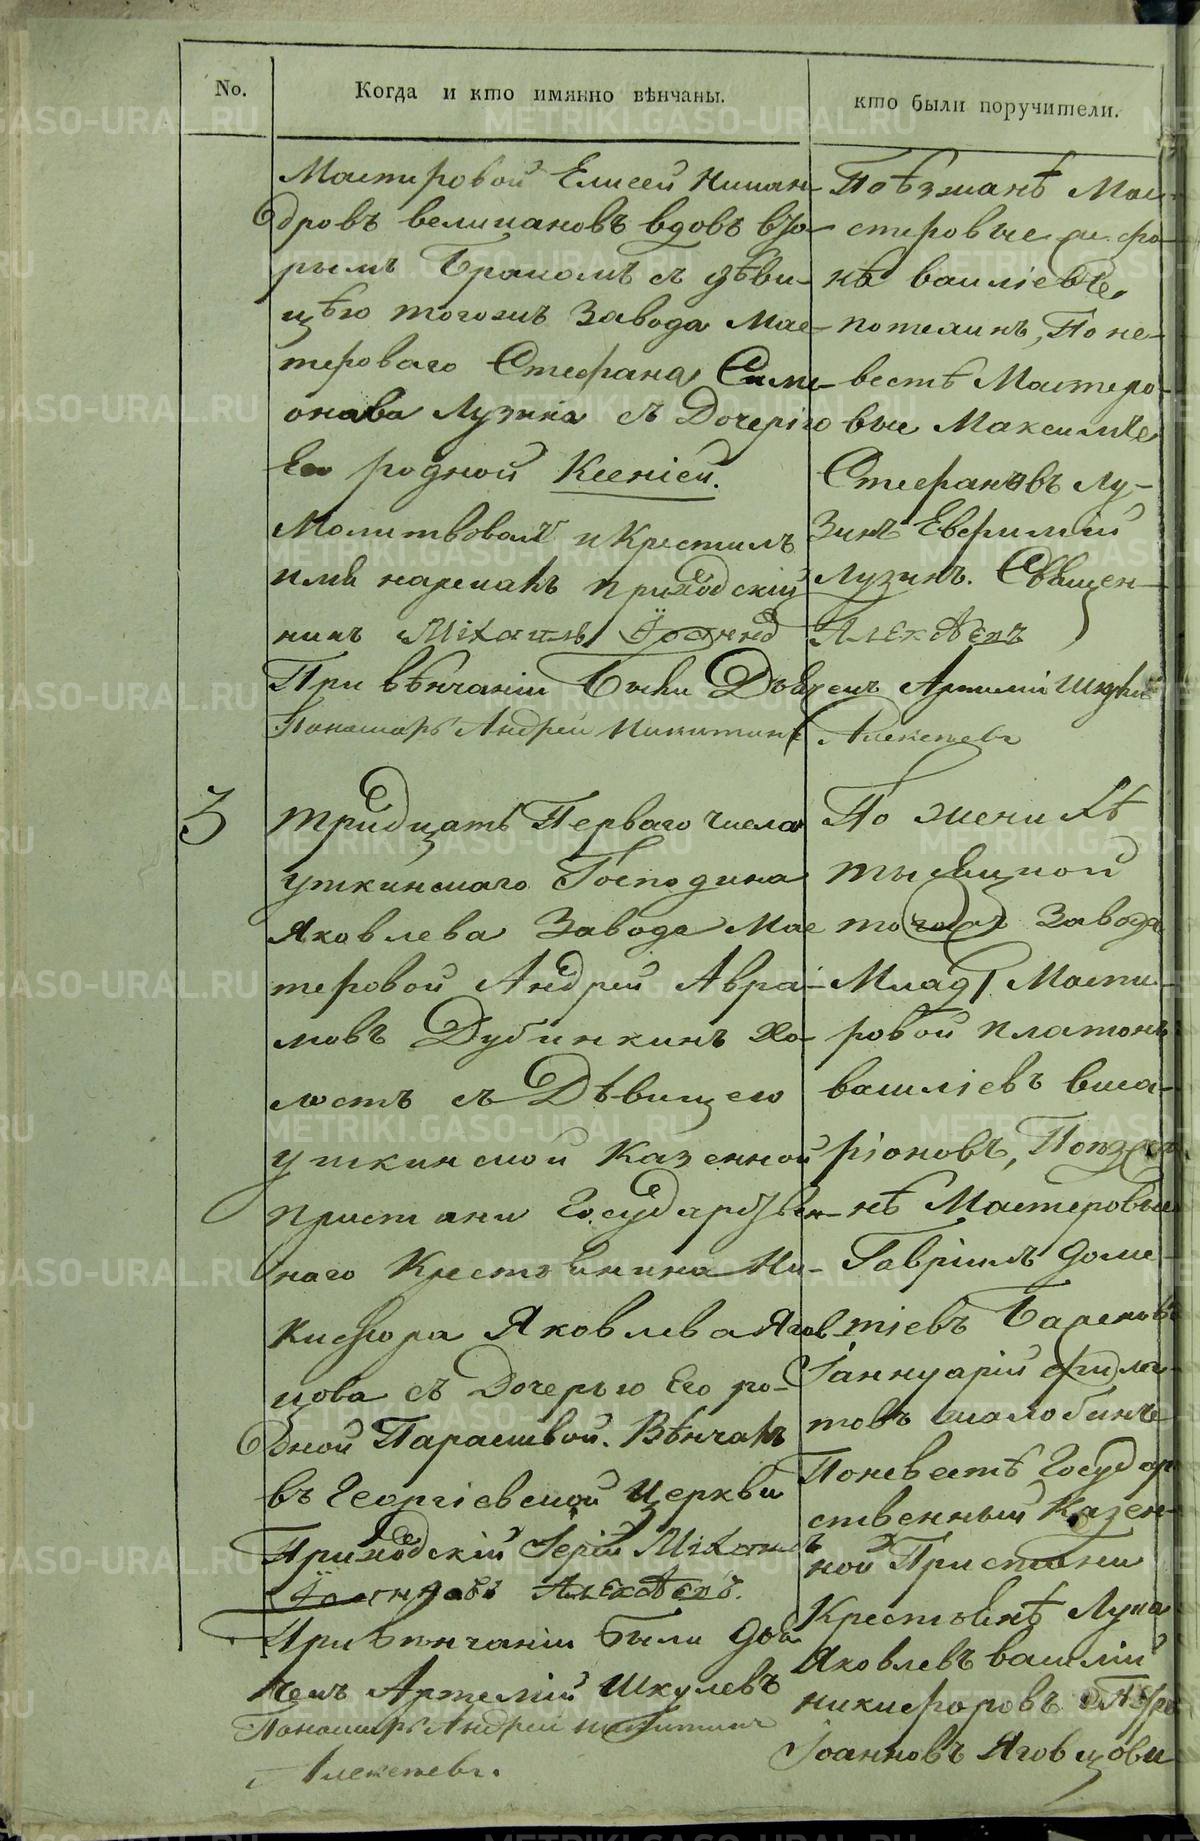 No.
Когда и кто имянно вѣнчаны.
кто были поручители.
Мастеровой Елисей Никан-
дровъ великановъ вдовъ вто-
рымъ Бракомъ съ дѣви-
цѣю тогожъ Завода Мас-
тероваго Стефана Симе-
онова Лузина съ Дочерію
Его родной Ксеніей.
Молитвовалъ и Крестилъ
имя нарекалъ приходскій
Михаилъ
При вѣнчаніи были Дьячекъ Артемій
Пономарь Андрей Никитинъ Алексеевъ
Поѣзжанѣ Мас-
стеровые
василіевъ
потехинъ, По не-
вестѣ Мастеро-
вые Максимъ
Стефановъ Лу-
зинъ Евфимій
Лузинъ. Священ-
Алексѣевъ
3
тридцать Перваго числа
уткинскаго Господина
Яковлева Завода Мас
теровой Андрей Авра-
мовъ Дубинкинъ хо-
лостъ съ Дѣвицею
уткинской Казенной
пристани Государствен-
наго Крестьянина Ни-
кифора Яковлева Ягов
цова съ Дочерью Его ро-
дной Парасквой. Вѣнчалъ
въ Георгіевской Церкви
Приходскій Іерей Михаилъ
Іоанновъ Алексѣевъ.
При вѣнчаніи были Дья
чекъ Артемій Шкулевъ
Пономарь Андрей Никитинъ
Алексеевъ.
По женихѣ
тысяцкой
тогожъ Завода
Млад Масте-
ровой платонъ
василіевъ виса-
ріоновъ, Поѣзжа-
нѣ Мастеровые
Гавріилъ доме-
тіевъ
Іаннуарій фила-
товъ
Поневестѣ Государ
ственный Казен-
ной Пристани
Крестьянѣ Лука
Яковлевъ василій
никифоровъ
Іоанновъ Яговцовы
METRIKI.GASO-URAL.RU